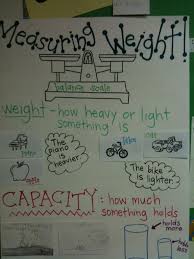 Measuring Weight!
balance scale
weight - how heavy or light
something is
The
piano is
heavier.
The bike
is lighter.
CAPACITY: how much
something holds
holds
more